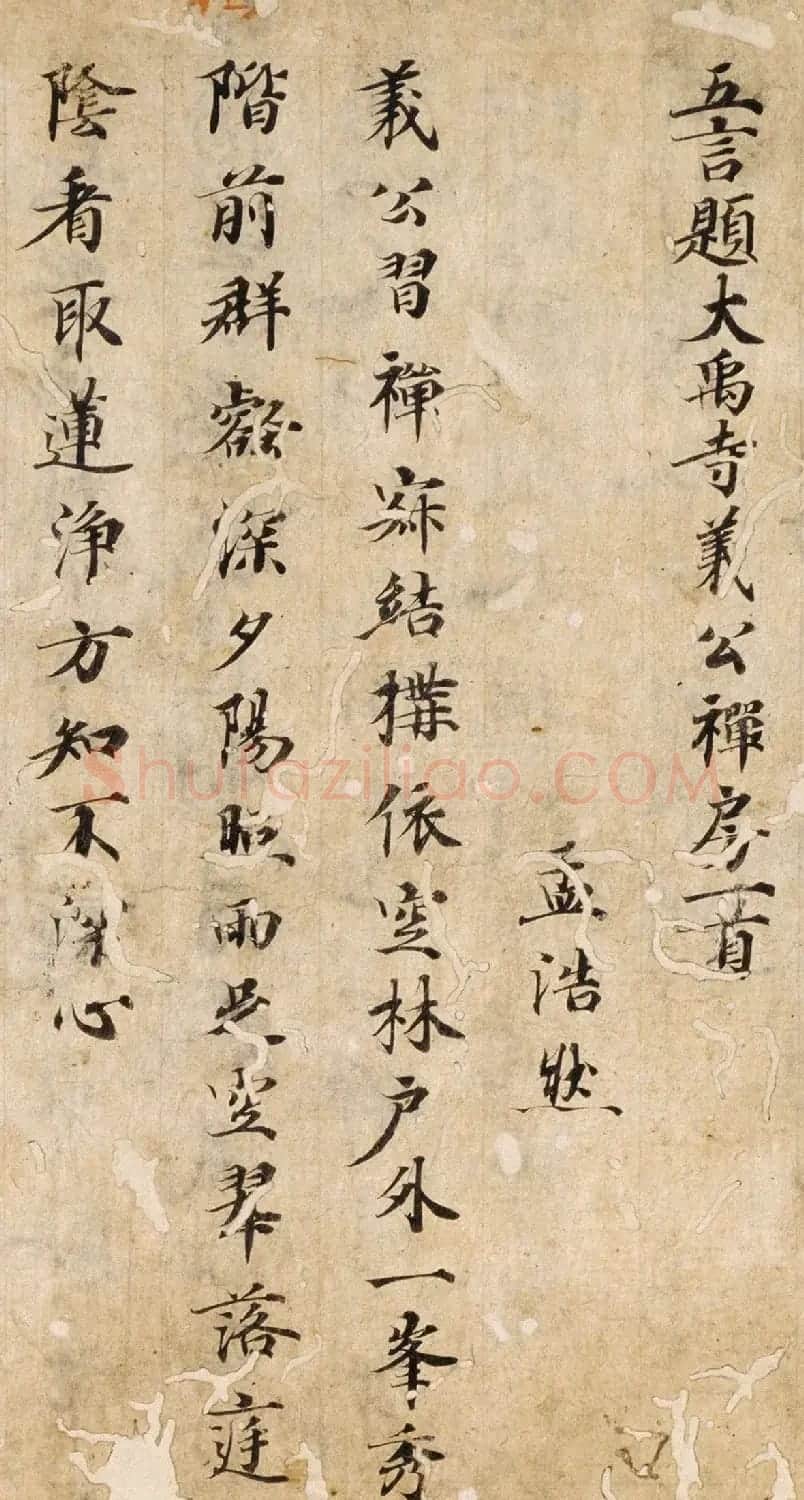 五言題大禹寺義公禪房一首
孟浩然
義公習禪寂結構依空林戶外一峯秀
階前群壑深夕陽照雨足空翠落庭
陰看取蓮淨方知不染心
Shufaziliao.COM